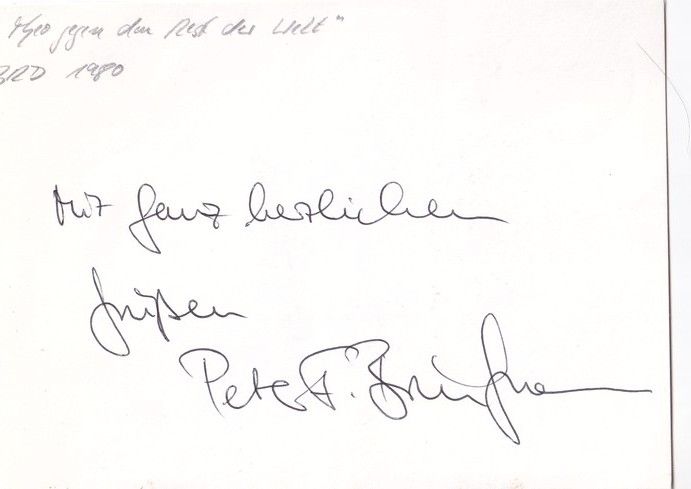 "Theo gegen den Rest der Welt"
BRD 1980
Mit ganz herzlichen
Grüßen
Peter F. Bringmann